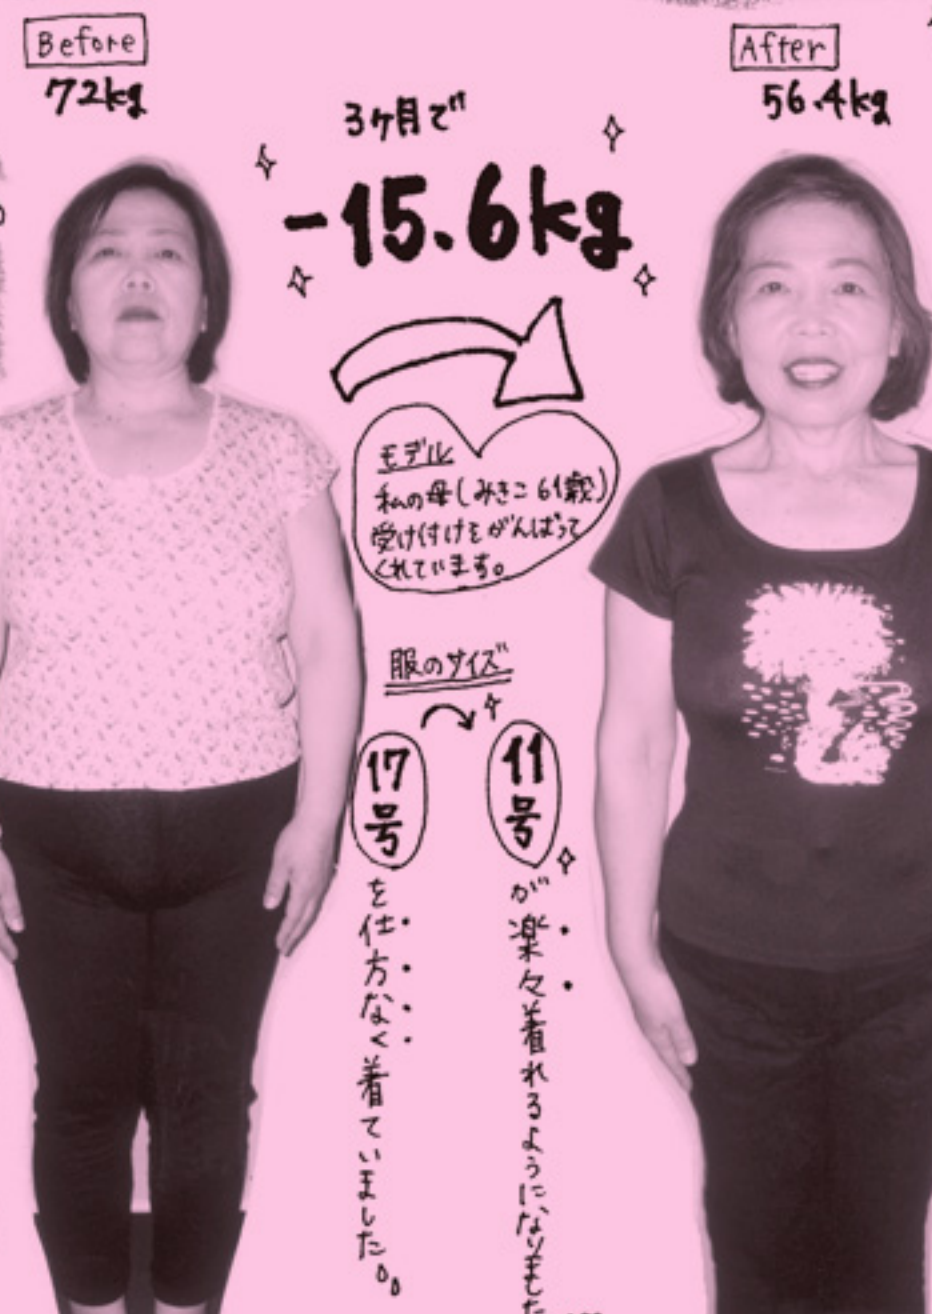 Before
72kg
After
56.4kg
3ヶ月で
-15.6kg
モデル
私の母(みきこ 61歳)
受け付けをがんばって
くれています。
服のサイズ
17号
を仕方なく着ていました。
11号
が楽々着れるようになりました